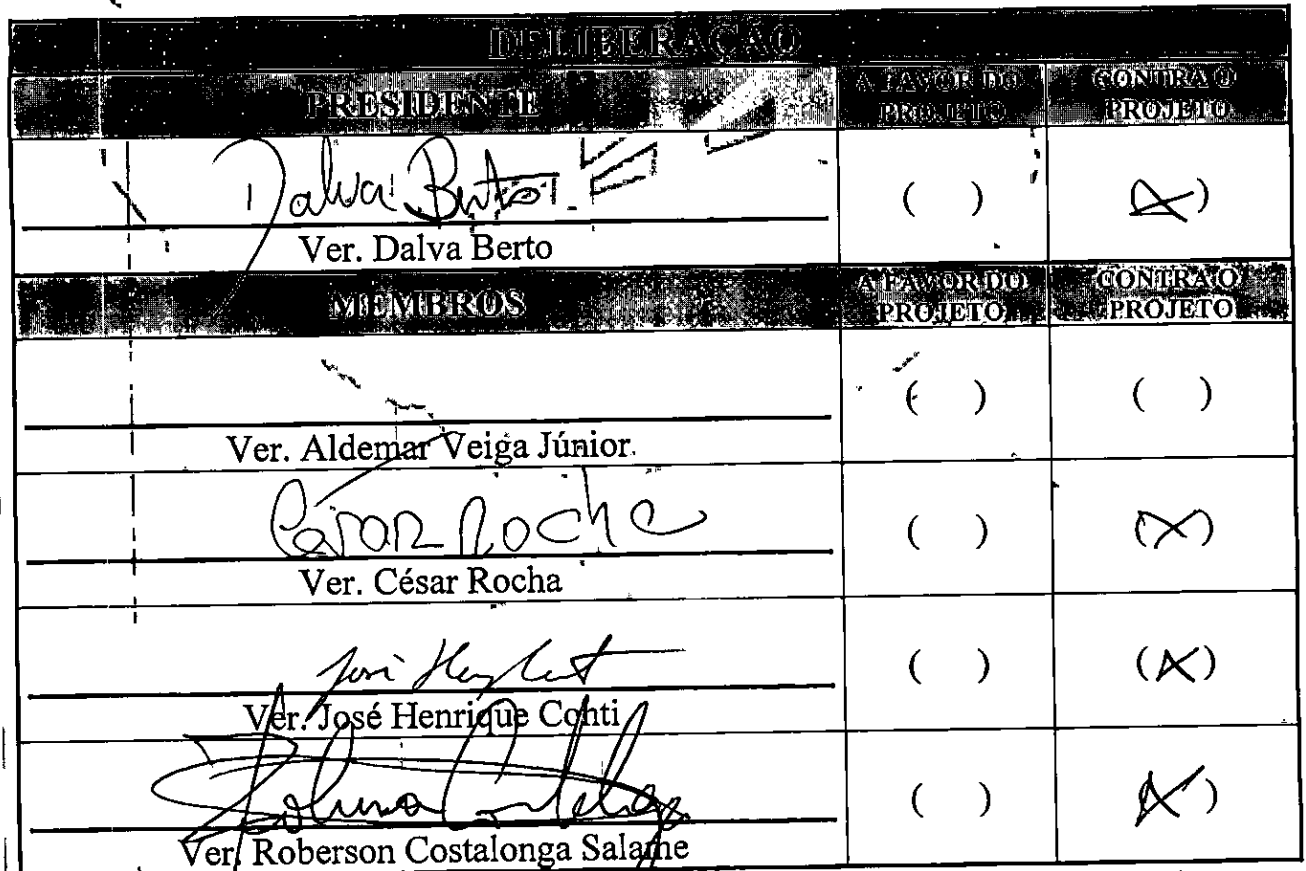 DELIBERAÇÃO
PRESIDENTE A FAVOR DO PROJETO CONTRA O PROJETO
Dalva Berto ( ) (X)
Ver. Dalva Berto
MEMBROS A FAVOR DO PROJETO CONTRA O PROJETO
( ) ( )
Ver. Aldemar Veiga Júnior
César Rocha ( ) (X)
Ver. César Rocha
José ( ) (X)
Ver. José Henrique Conti
( ) (X)
Ver. Roberson Costalonga Salame